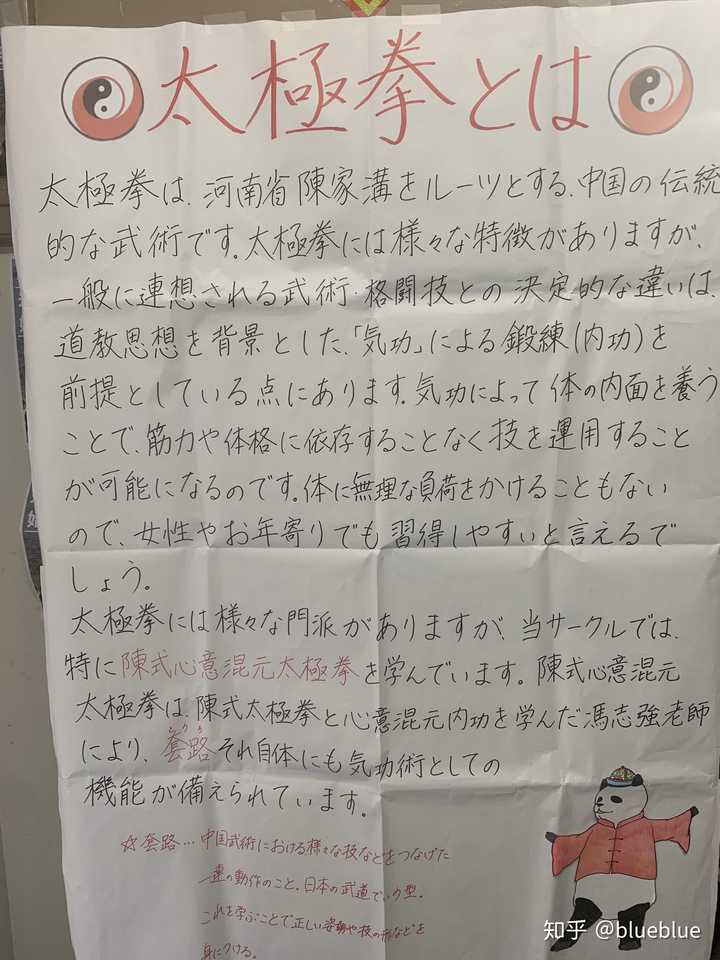 太極拳とは
太極拳は、河南省陳家溝をルーツとする、中国の伝統
的な武術です。太極拳には様々な特徴がありますが、
一般に連想される武術・格闘技との決定的な違いは、
道教思想を背景とした、「気功」による鍛練(内功)を
前提としている点にあります。気功によって体の内面を養う
ことで、筋力や体格に依存することなく技を運用すること
が可能になるのです。体に無理な負荷をかけることもない
ので、女性やお年寄りでも習得しやすいと言えるで
しょう。
太極拳には様々な門派がありますが、当サークルでは、
特に陳式心意混元太極拳を学んでいます。陳式心意混元
太極拳は、陳式太極拳と心意混元内功を学んだ馮志強老師
により、套路それ自体にも気功術としての
機能が備えられています。
☆套路…中国武術における様々な技などをつなげた
一連の動作のこと。日本の武道でいう型。
これを学ぶことで正しい姿勢や技の形などを
身につける。
知乎 @blueblue